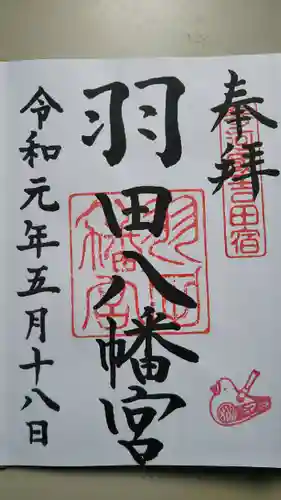 奉拝
吉田宿
羽田八幡宮
羽田八幡宮
令和元年五月十八日